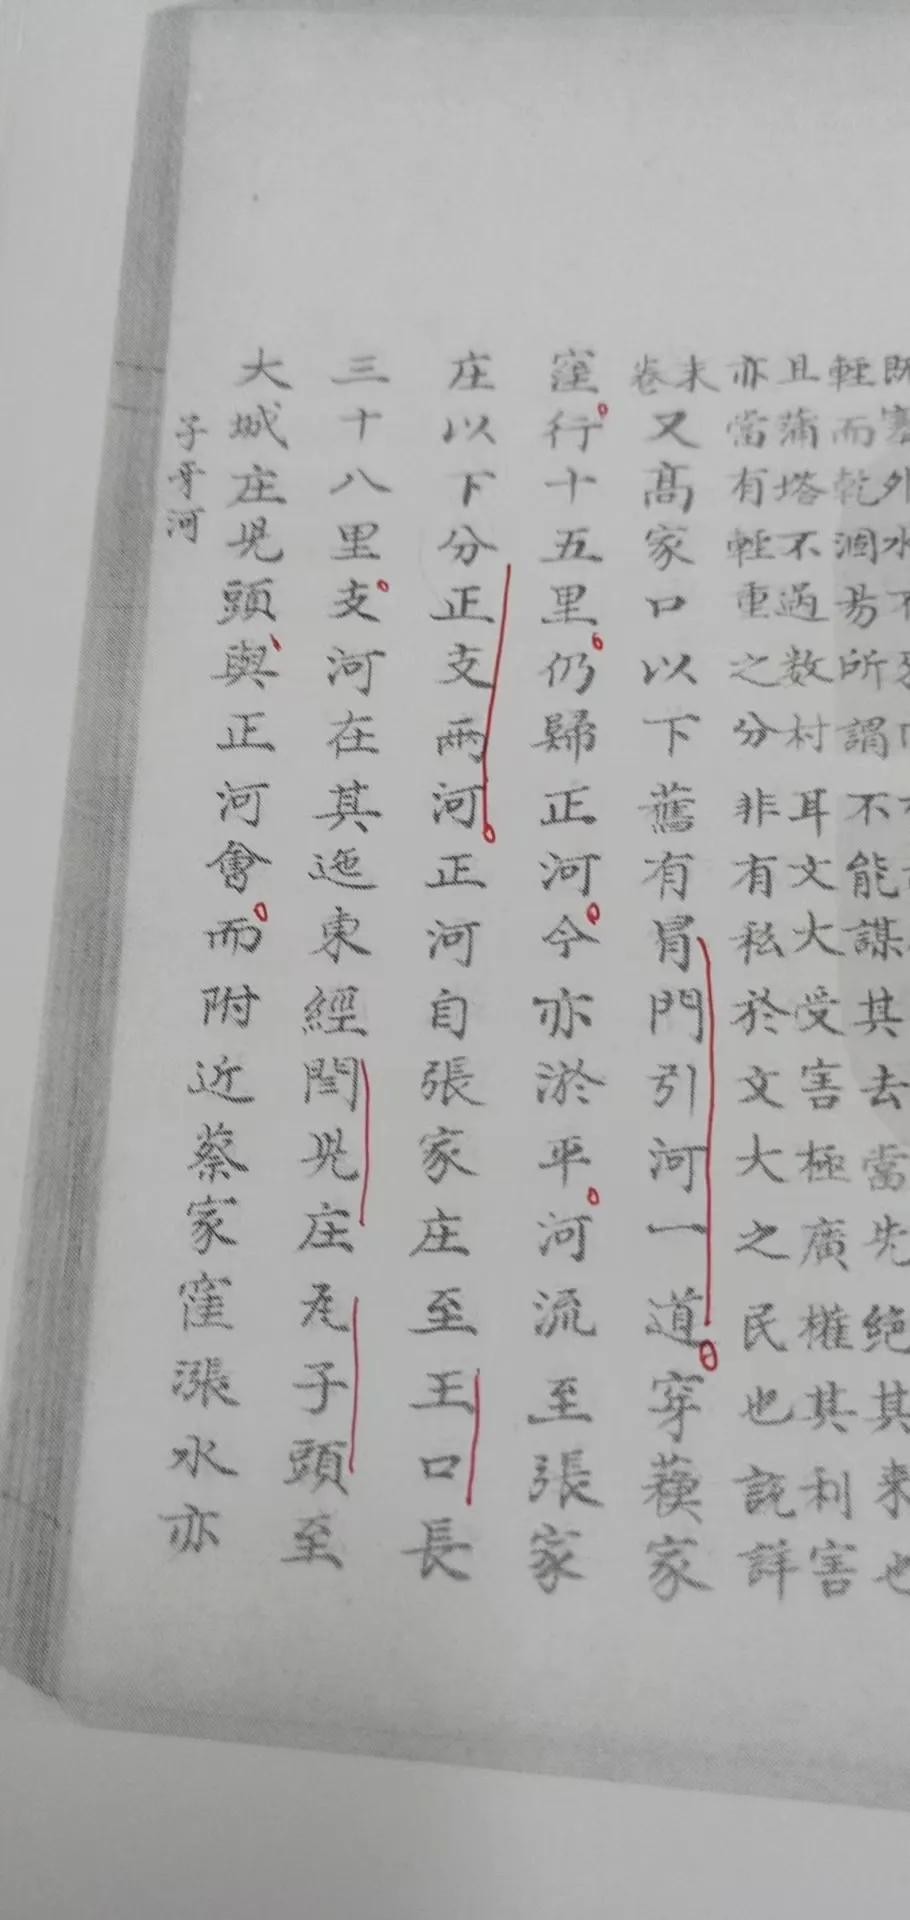 輕而乾涸易所謂不能謀其去當先絕其来也
且蒲塔不過数村耳文大受害極廣權其利害
亦當有輕重之分非有私於文大之民也説詳
卷末
又髙家口以下舊有冐門引河一道穿蔉家
窪行十五里仍歸正河今亦淤平河流至張家
庄以下分正支兩河正河自張家庄至王口長
三十八里支河在其迤東經閏児庄尨子頭至
大城庄児頭與正河會而附近蔡家窪漲水亦
子牙河